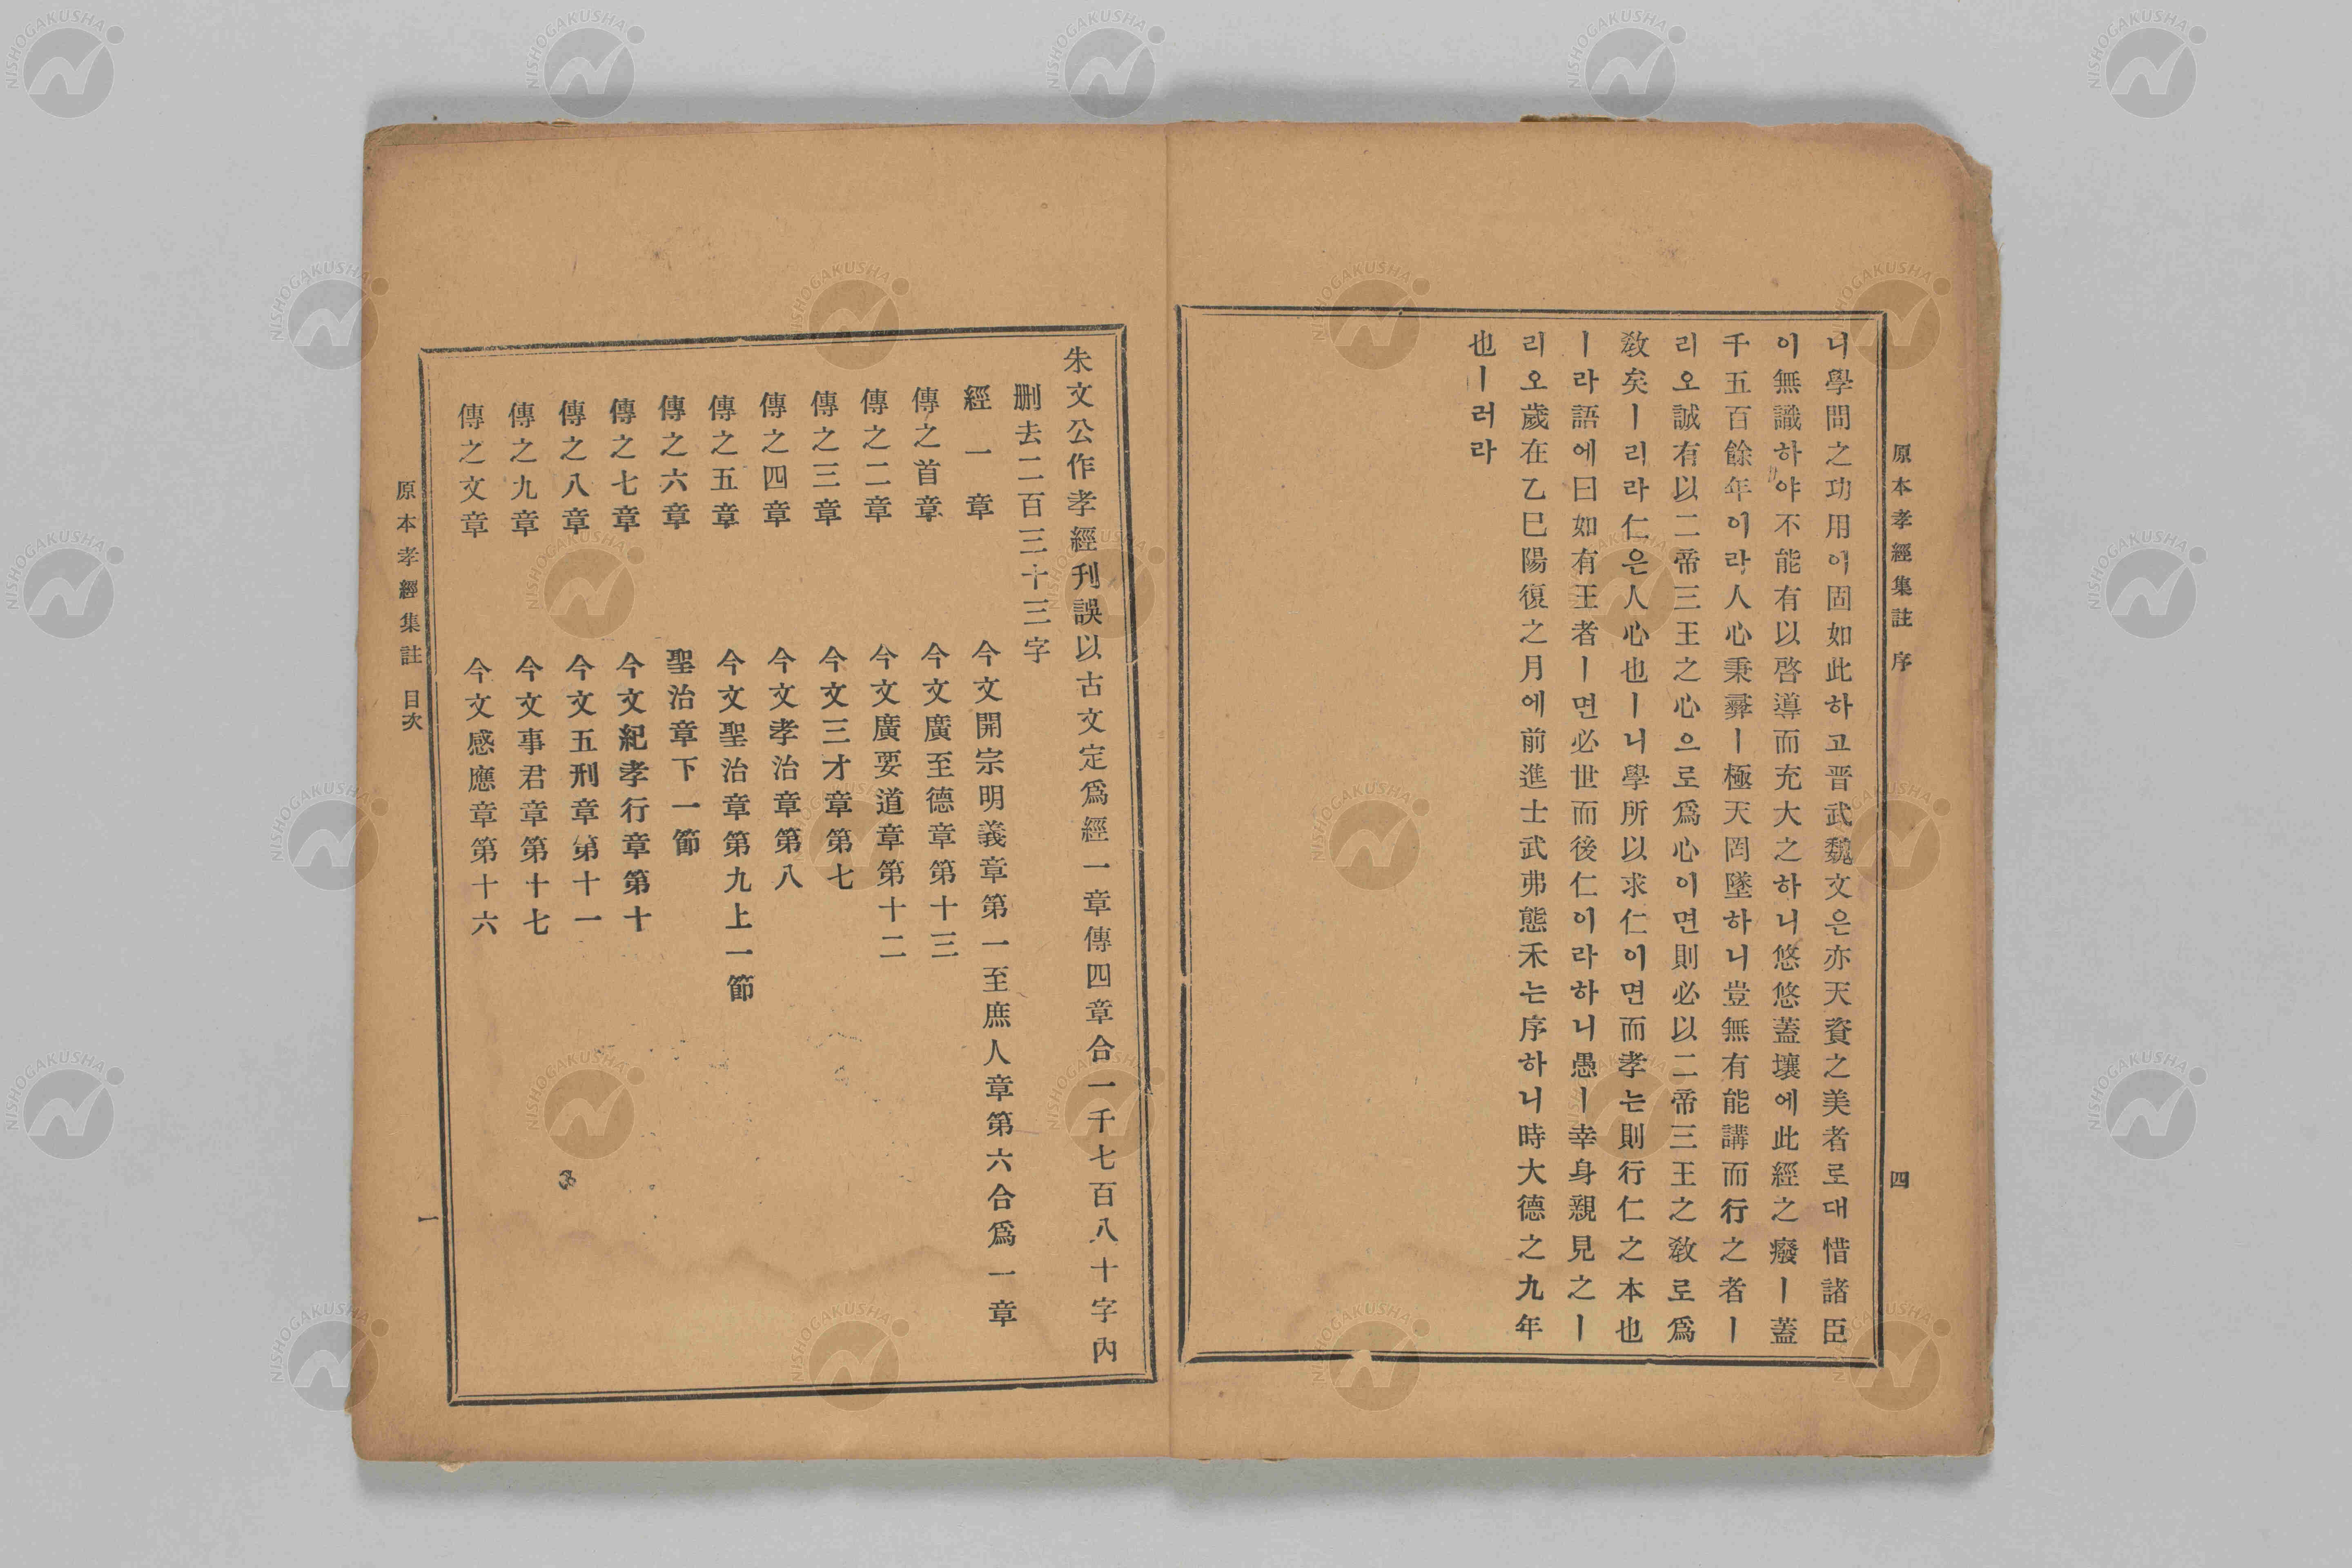 原本孝經集註 序 四
니學問之功用이固如此하고晋武魏文은亦天資之美者로대惜諸臣
이無識하야不能有以啓導而充大之하니悠悠蓋壤에此經之癈ㅣ蓋
千五百餘年이라人心秉彛ㅣ極天罔墜하니豈無有能講而行之者ㅣ
리오誠有以二帝三王之心으로爲心이면則必以二帝三王之敎로爲
敎矣ㅣ리라仁은人心也ㅣ니學所以求仁이면而孝는則行仁之本也
ㅣ라語에曰如有王者ㅣ면必世而後仁이라하니愚ㅣ幸身親見之ㅣ
리오歲在乙巳陽復之月에前進士武弗態禾는序하니時大德之九年
也ㅣ러라
朱文公作孝經刊誤以古文定爲經一章傳四章合一千七百八十字內
刪去二百三十三字
經一章 今文開宗明義章第一至庶人章第六合爲一章
傳之首章 今文廣至德章第十三
傳之二章 今文廣要道章第十二
傳之三章 今文三才章第七
傳之四章 今文孝治章第八
傳之五章 今文聖治章第九上一節
傳之六章 聖治章下一節
傳之七章 今文紀孝行章第十
傳之八章 今文五刑章第十一
傳之九章 今文事君章第十七
傳之文章 今文感應章第十六
原本孝經集註 目次 一
NISHOGAKUSHA